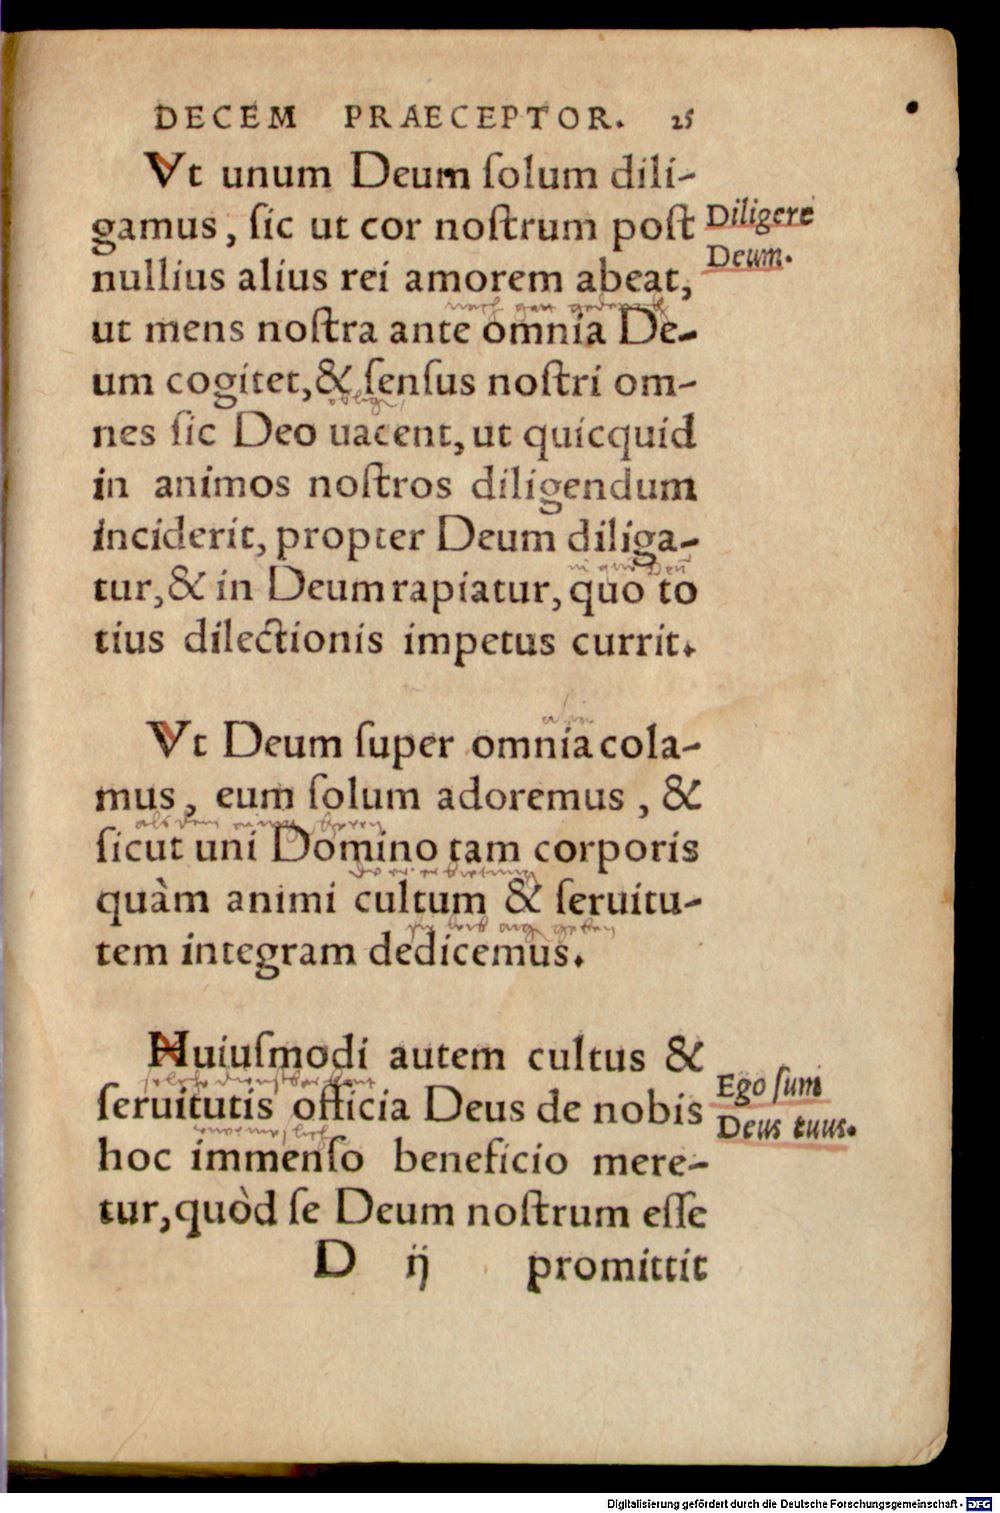 DECEM PRAECEPTOR. 25
Vt unum Deum ſolum dili-
gamus, ſic ut cor noſtrum poſt
Diligere
Deum.
nullius alius rei amorem abeat,
ut mens noſtra ante omnia De-
um cogitet, & ſenſus noſtri om-
nes ſic Deo uacent, ut quicquid
in animos noſtros diligendum
inciderit, propter Deum diliga-
tur, & in Deum rapiatur, quo to
tius dilectionis impetus currit.
Vt Deum ſuper omnia cola-
mus, eum ſolum adoremus, &
ſicut uni Domino tam corporis
quàm animi cultum & ſeruitu-
tem integram dedicemus.
Huiuſmodi autem cultus &
ſeruitutis officia Deus de nobis
Ego ſum
Deus tuus.
hoc immenſo beneficio mere-
tur, quòd ſe Deum noſtrum eſſe
D ij promittit
Digitalisierung gefördert durch die Deutsche Forschungsgemeinschaft - DFG